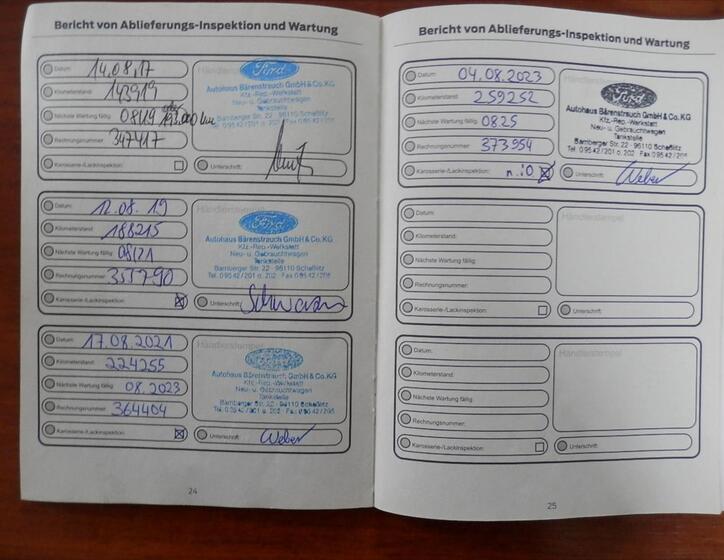 Bericht von Ablieferungs-Inspektion und Wartung
Datum: 14.08.17
Kilometerstand: 143919
Nächste Wartung fällig: 08/19
Rechnungsnummer: 347417
Karosserie-/Lackinspektion:
Ford
Autohaus Bärenstrauch GmbH & Co. KG
Kfz.-Rep.-Werkstatt
Neu- u. Gebrauchtwagen
Tankstelle
Bamberger Str. 22 - 96110 Scheßlitz
Tel. 0 95 42 / 201 o. 202
Unterschrift:
Datum: 12.08.19
Kilometerstand: 188215
Nächste Wartung fällig: 08/21
Rechnungsnummer: 355790
Karosserie-/Lackinspektion:
Händlerstempel
Ford
Autohaus Bärenstrauch GmbH & Co. KG
Kfz.-Rep.-Werkstatt
Neu- u. Gebrauchtwagen
Tankstelle
Bamberger Str. 22 - 96110 Scheßlitz
Tel. 0 95 42 / 201 o. 202 Fax 0 95 42 / 295
Unterschrift:
Datum: 17.08.2021
Kilometerstand: 224255
Nächste Wartung fällig: 08.2023
Rechnungsnummer: 364404
Karosserie-/Lackinspektion:
Händlerstempel
Ford
Autohaus Bärenstrauch GmbH & Co. KG
Kfz.-Rep.-Werkstatt
Neu- u. Gebrauchtwagen
Tankstelle
Bamberger Str. 22 - 96110 Scheßlitz
Tel. 0 95 42 / 201 o. 202 Fax 0 95 42 / 295
Unterschrift: Weber
24
Bericht von Ablieferungs-Inspektion und Wartung
Datum: 04.08.2023
Kilometerstand: 259252
Nächste Wartung fällig: 08.25
Rechnungsnummer: 373954
Karosserie-/Lackinspektion: n.iO
Ford
Autohaus Bärenstrauch GmbH & Co. KG
Kfz.-Rep.-Werkstatt
Neu- u. Gebrauchtwagen
Tankstelle
Bamberger Str. 22 - 96110 Scheßlitz
Tel. 0 95 42 / 201 o. 202 Fax 0 95 42 / 295
Unterschrift: Weber
Datum:
Kilometerstand:
Nächste Wartung fällig:
Rechnungsnummer:
Karosserie-/Lackinspektion:
Händlerstempel
Unterschrift:
Datum:
Kilometerstand:
Nächste Wartung fällig:
Rechnungsnummer:
Karosserie-/Lackinspektion:
Händlerstempel
Unterschrift:
25